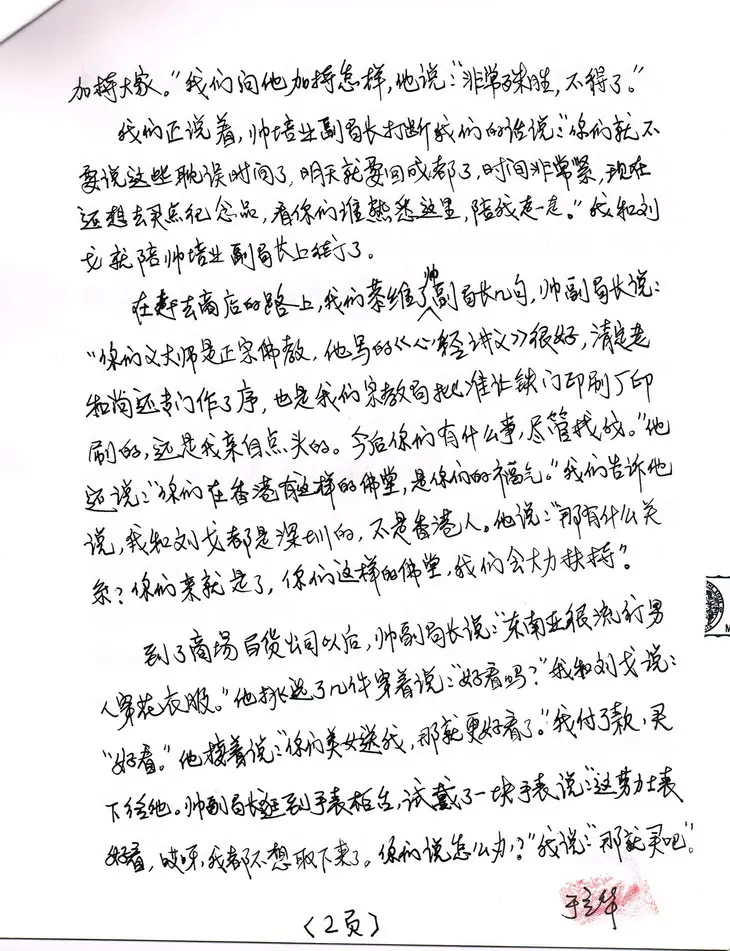 加持大家。”我们问他加持怎样，他说：“非常殊胜，不得了。”
我们正说着，帅培业副局长打断我们的话说：“你们就不
要说这些耽误时间了，明天就要回成都了，时间非常紧，现在
还想去买点纪念品，看你们谁熟悉这里，陪我走一走。”我和刘
戈就陪帅培业副局长上街了。
在赶去商店的路上，我们恭维了帅副局长几句，帅副局长说：
“你们义大师是正宗佛教，他写的《《心》经讲义》很好，清定老
和尚还专门作了序，也是我们宗教局批准让铁门印刷厂印
刷的，还是我亲自点头的。今后你们有什么事，尽管找我。”他
还说：“你们在香港有这样的佛堂，是你们的福气。”我们告诉他
说，我和刘戈都是深圳的，不是香港人。他说：“那有什么关
系？你们来就是了，你们这样的佛堂，我们会大力扶持”。
到了商场百货公司以后，帅副局长说：“东南亚很流行男
人穿花衣服。”他挑选了几件穿着说：“好看吗？”我和刘戈说：
“好看。”他接着说：“你们美女送我，那就更好看了。”我付了款，买
下给他。帅副局长逛到手表柜台，试戴了一块手表说：“这劳力士表
好看，哎呀，我都不想取下来了。你们说怎么办？”我说：“那就买吧”。
于立华
〈2页〉